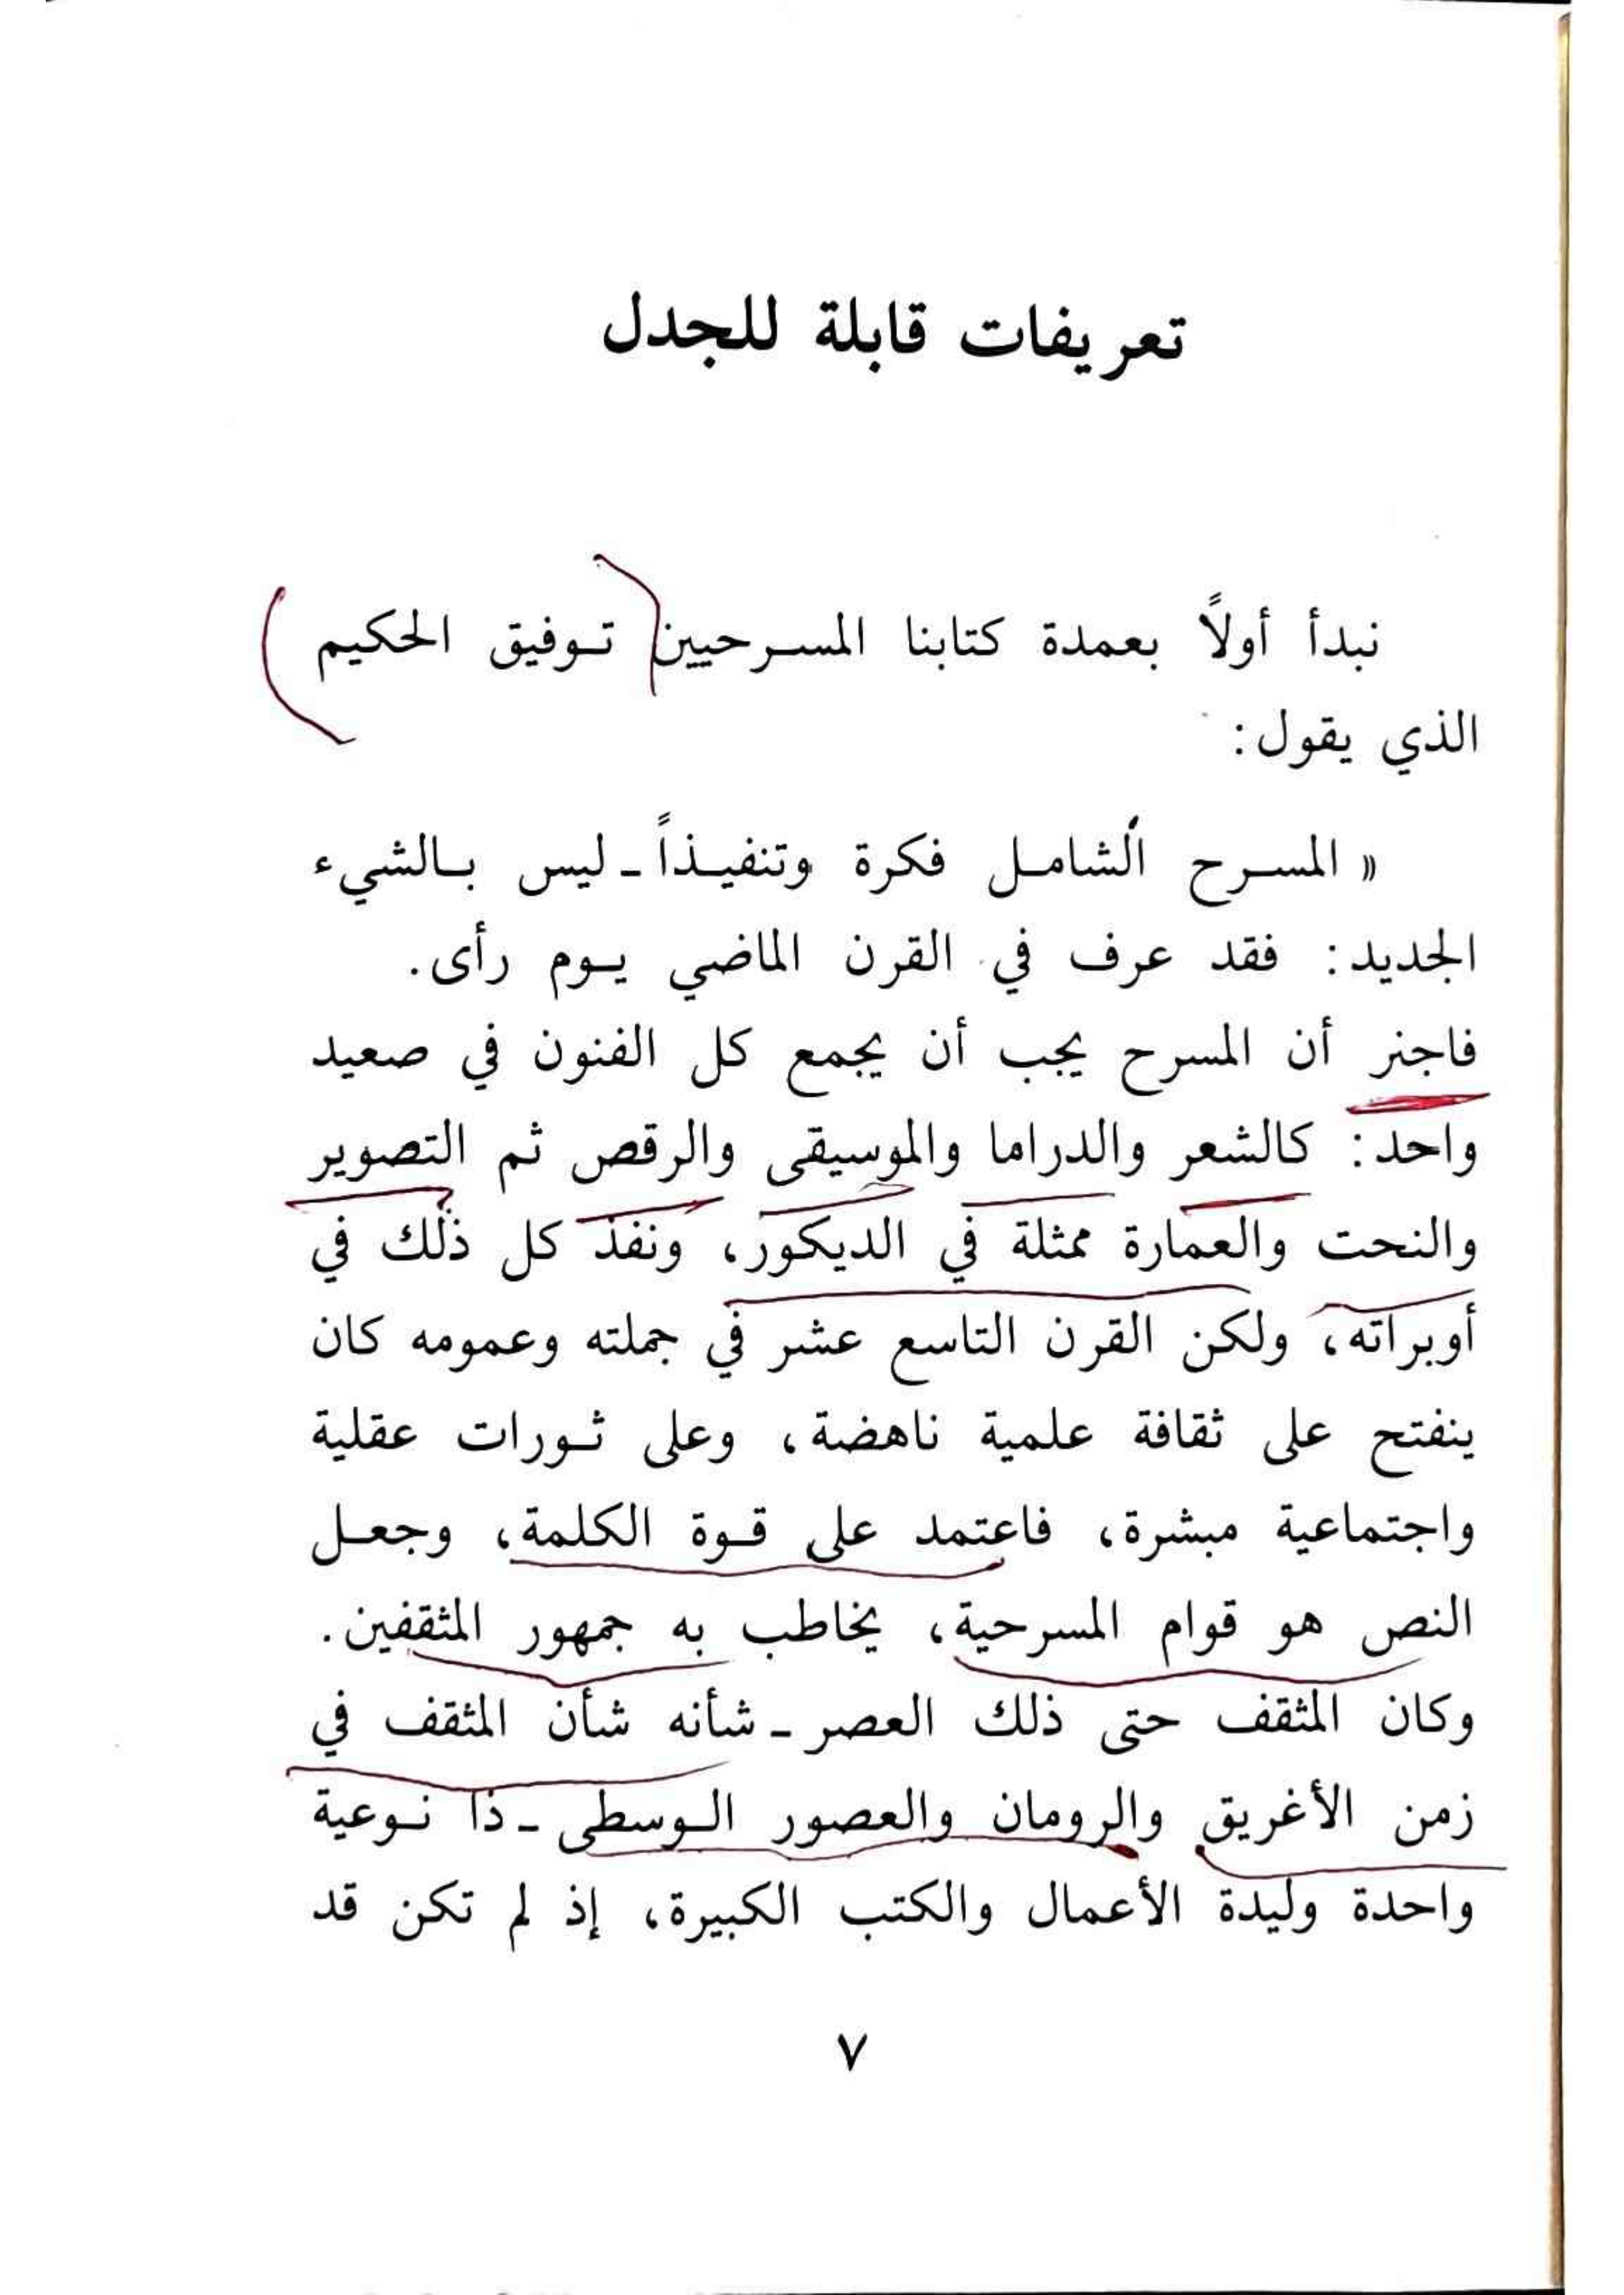 تعريفات قابلة للجدل
نبدأ أولاً بعمدة كتابنا المسرحيين توفيق الحكيم
الذي يقول:
« المسرح الشامل فكرة وتنفيذاً ـ ليس بالشيء
الجديد: فقد عرف في القرن الماضي يوم رأى.
فاجنر أن المسرح يجب أن يجمع كل الفنون في صعيد
واحد: كالشعر والدراما والموسيقى والرقص ثم التصوير
والنحت والعمارة ممثلة في الديكور، ونفذ كل ذلك في
أوبراته، ولكن القرن التاسع عشر في جملته وعمومه كان
ينفتح على ثقافة علمية ناهضة، وعلى ثورات عقلية
واجتماعية مبشرة، فاعتمد على قوة الكلمة، وجعل
النص هو قوام المسرحية، يخاطب به جمهور المثقفين.
وكان المثقف حتى ذلك العصر ـ شأنه شأن المثقف في
زمن الأغريق والرومان والعصور الوسطى ـ ذا نوعية
واحدة وليدة الأعمال والكتب الكبيرة، إذ لم تكن قد
٧